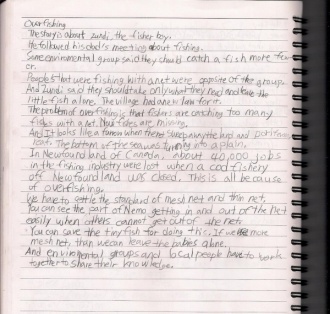 Overfishing
The story is about Zundi, the fisher boy.
He followed his dad's meeting about fishing.
Some environmental group said they should catch a fish more few
er.
Peoples that were fishing with a net were opposite of the group.
And Zundi said they should take only what they need and leave the
little fish alone. The village had a new law for it.
The problem of overfishing is that fishers are catching too many
fishes with a net. Now fishes are missing.
And it looks like a when there sweep any the land and
The bottom of the sea was turning into a plain,
In Newfoundland of Canada, about 40,000 jobs
in the fishing industry were lost when a cod fishery
of Newfoundland was closed, This is all because
of overfishing.
We have to settle the standard of mesh net and thin net.
You can see the part of Nemo getting in and out of the net
easily when others cannot get out of the net.
You can save the tiny fish for doing this, If we more
mesh net, than we can leave the babies alone.
And enviromental groups and local people have to work
together to share their knowledge.